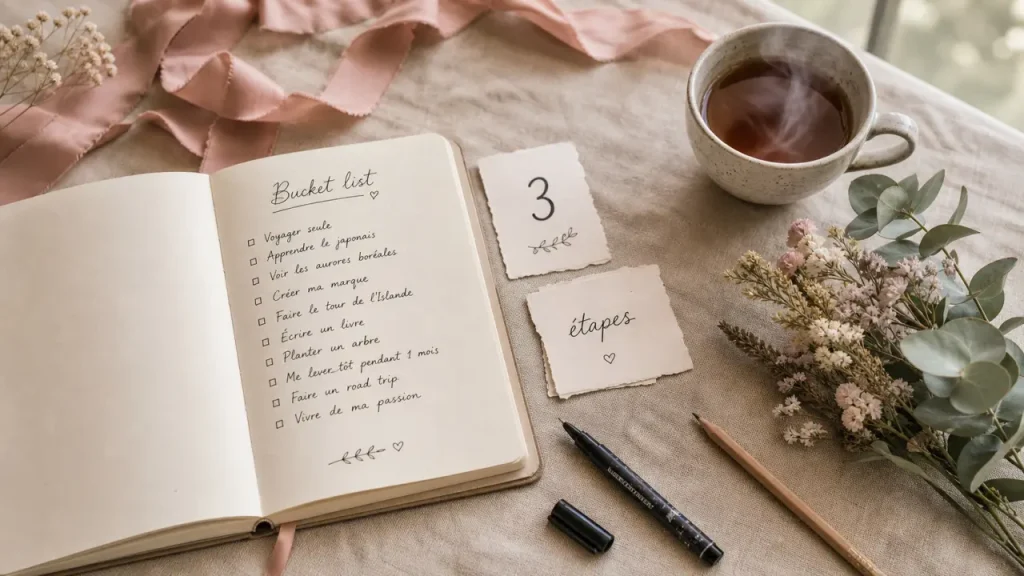 Bucket list
Voyager seule
Apprendre le japonais
Voir les aurores boréales
Créer ma marque
Faire le tour de l'Islande
Écrire un livre
Planter un arbre
Me lever tôt pendant 1 mois
Faire un road trip
Vivre de ma passion
3
étapes